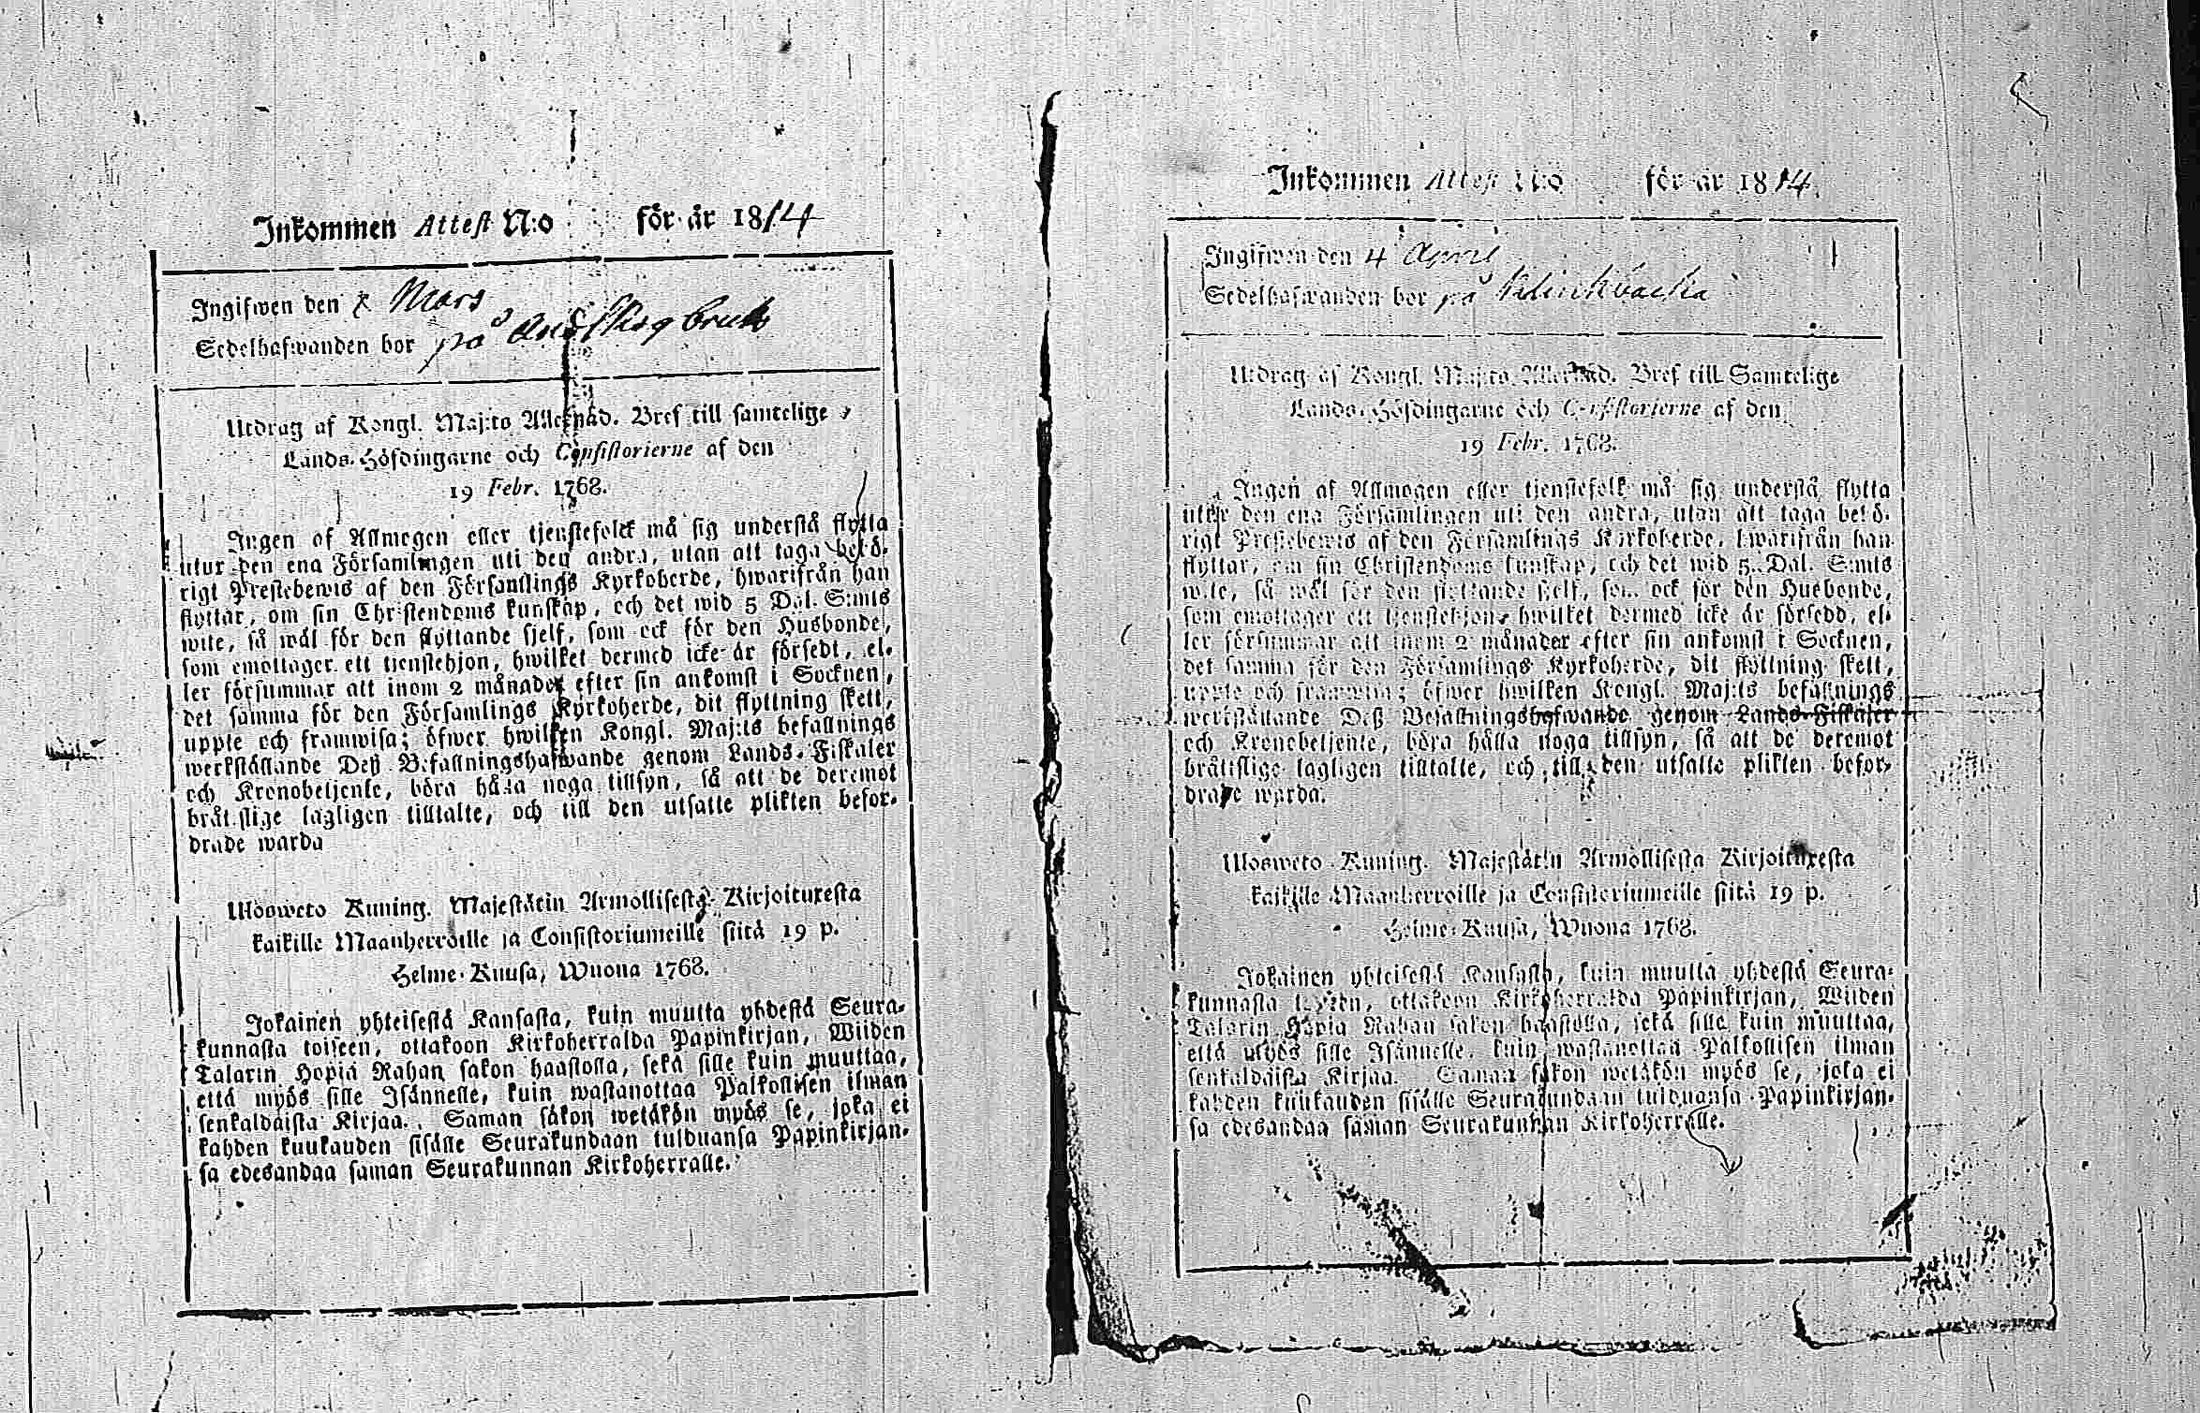 Inkommen Attest N:o för år 1814
Ingifwen den Mars
Sedelhafwanden bor på
Utdrag af Kongl. Maj:ts Allernåd. Bref till samtelige
Lands-Höfdingarne och Consistorierne af den
19 Febr. 1768.
Ingen af Allmogen eller tjenstefolck må sig understå flytta
utur den ena Församlingen uti den andra, utan att taga behö-
rigt Prestebewis af den Församlings Kyrkoherde, hwarifrån han
flyttar, om sin Christendoms kunskap, och det wid 5 Dal. S:mts
wite, så wäl för den flyttande sjelf, som ock för den Husbonde,
som emottager ett tjenstehjon, hwilket dermed icke är försedt, el-
ler försummar att inom 2 månader efter sin ankomst i Socknen,
det samma för den Församlings Kyrkoherde, dit flyttning skett,
uppte och framwisa; öfwer hwilken Kongl. Maj:ts befallnings
werkställande Deß Befallningshafwande genom Lands-Fiskaler
och Kronobetjente, böra hålla noga tillsyn, så att de deremot
bråtslige lagligen tilltalte, och till den utsatte plikten befor-
drade warda
Ulosweto Kuning. Majestätin Armollisesta Kirjoituxesta
kaikille Maanherroille ja Consistoriumeille siitä 19 p.
Helme-Kuusa, Wuona 1768.
Jokainen yhteisestä Kansasta, kuin muutta yhdestä Seura-
kunnasta toiseen, ottakoon Kirkoherralda Papinkirjan, Wiiden
Talarin Hopia Rahan sakon haastolla, sekä sille kuin muuttaa,
että myös sille Isännelle, kuin wastanottaa Palkollisen ilman
senkaldaista Kirjaa. Saman sakon wetäkön myös se, joka ei
kahden kuukauden sisälle Seurakundaan tulduansa Papinkirjan-
sa edesandaa saman Seurakunnan Kirkoherralle.
Inkommen Attest N:o för år 1814
Ingifwen den 4 April
Sedelhafwanden bor på Klinckbacka
Utdrag af Kongl. Maj:ts Allernåd. Bref till Samtelige
Lands-Höfdingarne och Consistorierne af den
19 Febr. 1768.
Ingen af Allmogen eller tjenstefolk må sig understå flytta
utur den ena Församlingen uti den andra, utan att taga behö-
rigt Prestebewis af den Församlings Kyrkoherde, hwarifrån han
flyttar, om sin Christendoms kunskap, och det wid 5 Dal. S:mts
wite, så wäl för den flyttande sjelf, som ock för den Husbonde,
som emottager ett tjenstehjon, hwilket dermed icke är försedd, el-
ler försummar att inom 2 månader efter sin ankomst i Socknen,
det samma för den Församlings Kyrkoherde, dit flyttning skett,
uppte och framwisa; öfwer hwilken Kongl. Maj:ts befallnings
werkställande Deß Befallningshafwande genom Lands-Fiskaler
och Kronobetjente, böra hålla noga tillsyn, så att de deremot
bråtslige lagligen tilltalte, och till den utsatte plikten befor-
drade warda.
Ulosweto Kuning. Majestätin Armollisesta Kirjoituxesta
kaikille Maanherroille ja Consistoriumeille siitä 19 p.
Helme-Kuusa, Wuona 1768.
Jokainen yhteisestä Kansasta, kuin muutta yhdestä Seura-
kunnasta toiseen, ottakoon Kirkoherralda Papinkirjan, Wiiden
Talarin Hopia Rahan sakon haastolla, sekä sille kuin muuttaa,
että myös sille Isännelle, kuin wastanottaa Palkollisen ilman
senkaldaista Kirjaa. Saman sakon wetäkön myös se, joka ei
kahden kuukauden sisälle Seurakundaan tulduansa Papinkirjan-
sa edesandaa saman Seurakunnan Kirkoherralle.